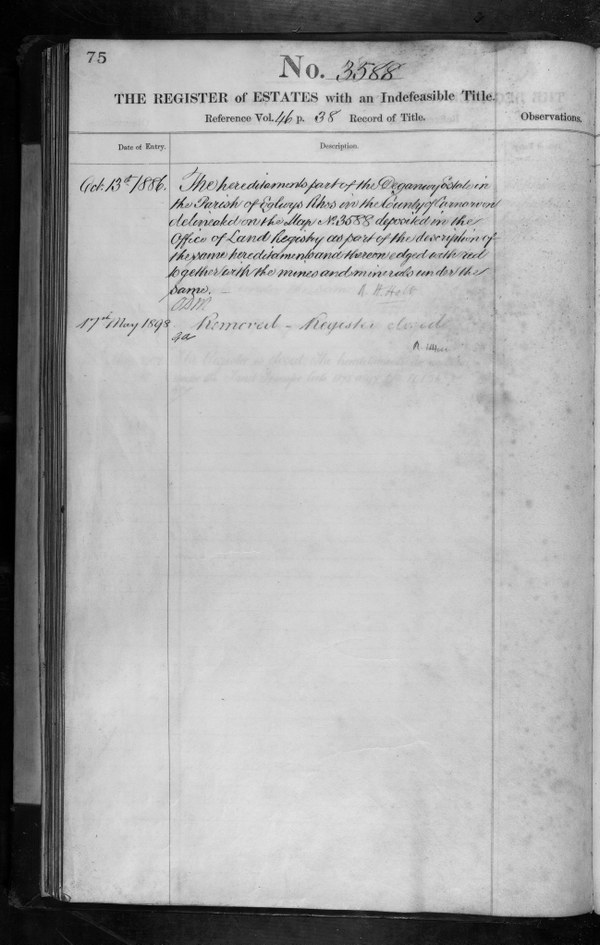 75
No. 3588
THE REGISTER of ESTATES with an Indefeasible Title.
Reference Vol. 46 p. 38 Record of Title.
Observations.
Date of Entry.
Description.
Oct. 13th 1886.
The hereditaments part of the Deganwy Estate in
the Parish of Eglwys Rhos in the County of Carnarvon
delineated on the Map No. 3588 deposited in the
Office of Land Registry as part of the description of
the same hereditaments and thereon edged with red
together with the mines and minerals under the
same. –
R. H. Holt
17th May 1898
Removed – Register closed